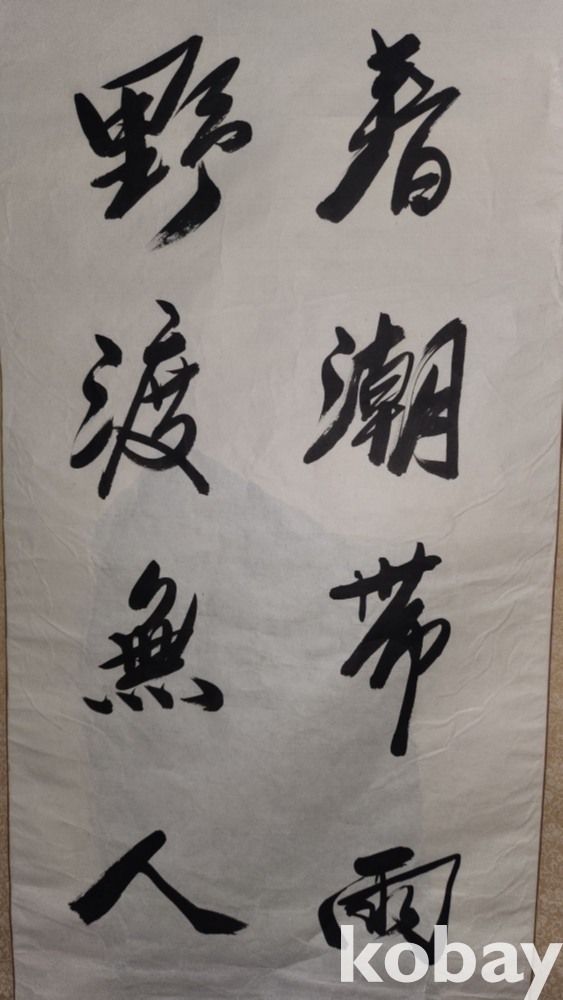 春潮帶雨
野渡無人
kobay